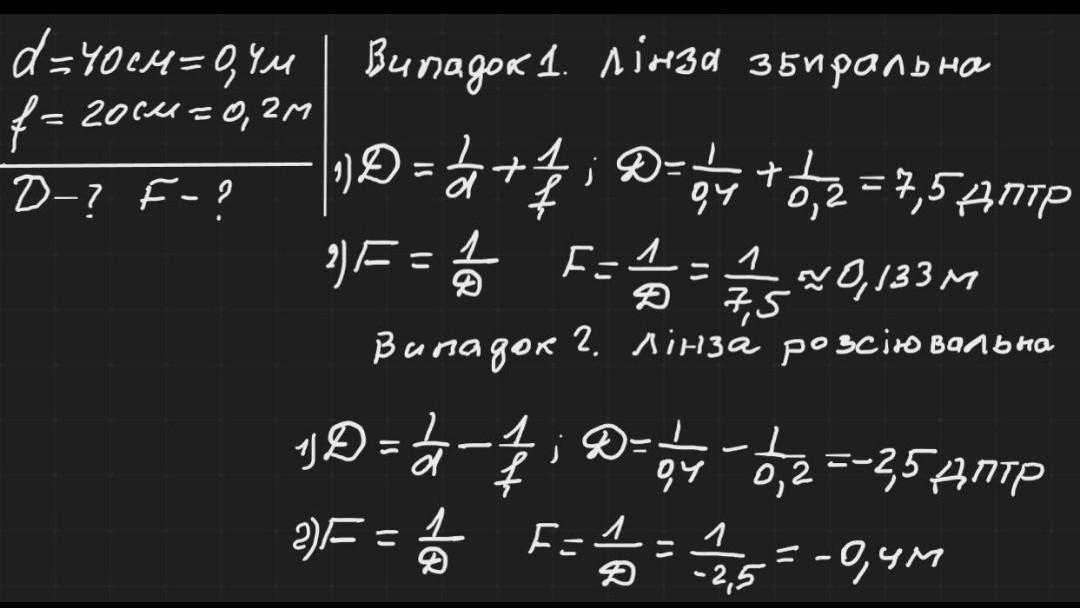 d = 40см = 0,4м
f = 20см = 0,2м
D - ? F - ?
Випадок 1. Лінза збиральна
1) D = 1/d + 1/f ; D = 1/0,4 + 1/0,2 = 7,5 дптр
2) F = 1/D F = 1/D = 1/7,5 ≈ 0,133 м
Випадок 2. Лінза розсіювальна
1) D = 1/d - 1/f ; D = 1/0,4 - 1/0,2 = -2,5 дптр
2) F = 1/D F = 1/D = 1/-2,5 = -0,4м